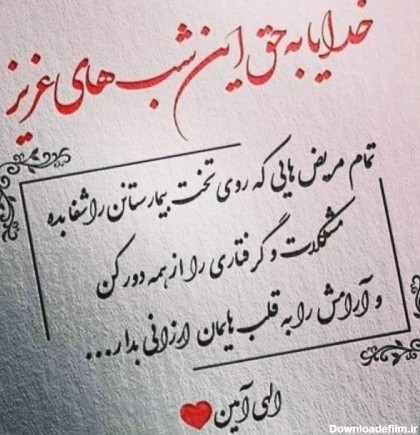 خدایا به حق این شب های عزیز
تمام مریض هایی که روی تخت بیمارستانن را شفا بده
مشکلات و گرفتاری را از همه دور کن
و آرامش را به قلب هایمان ارزانی بدار...
الهی آمین
Downloadefilm.ir